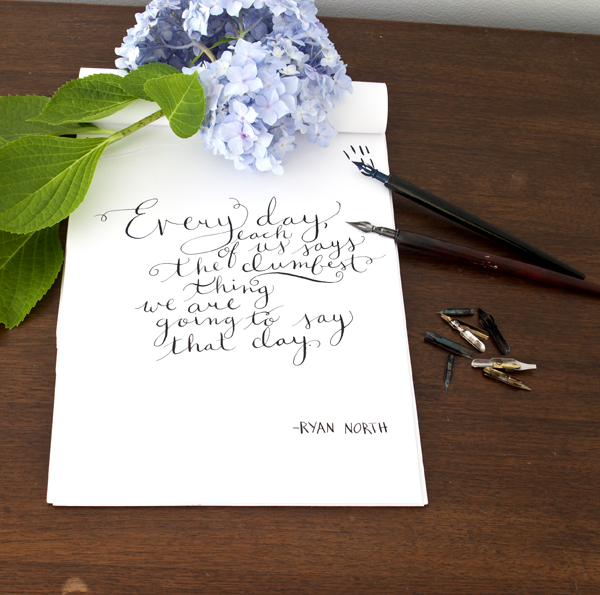 Every day,
each
of us says
the dumbest
thing
we are
going to say
that day.
-RYAN NORTH